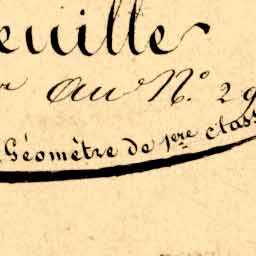 euille
au N.º 29
Géomètre de 1ère class